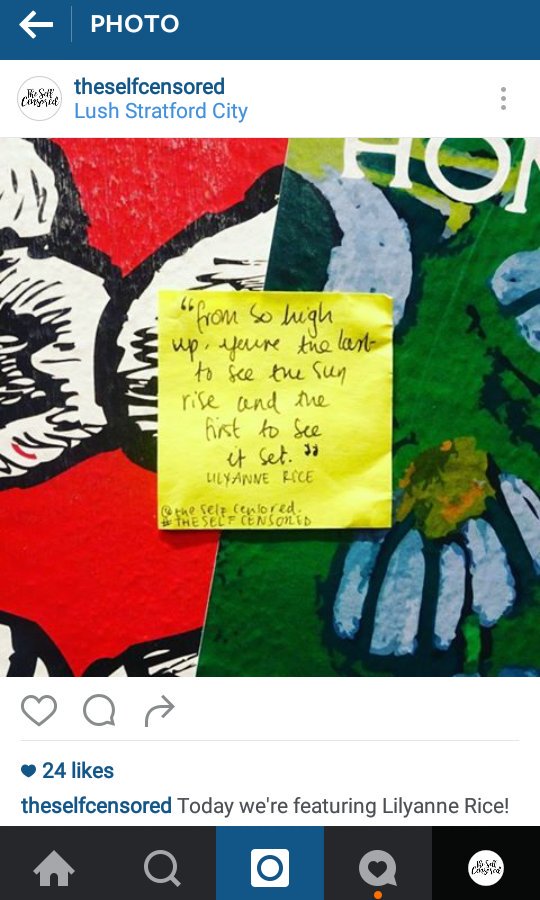 PHOTO
The Self
Censored
theselfcensored
Lush Stratford City
HOM
"from so high
up, you're the last
to see the sun
rise and the
first to see
it set."
LILYANNE RICE
@theselfcensored.
#THESELFCENSORED
24 likes
theselfcensored Today we're featuring Lilyanne Rice!